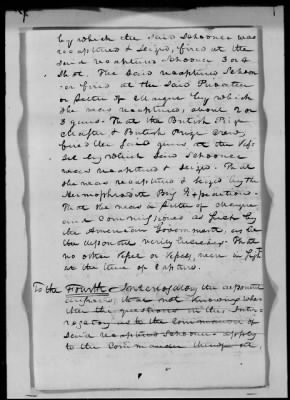 by which the said Schooner was
recaptured & Seized, fired at the
said recaptured Schooner 3 or 4
Shot. The Said recaptured Schoon-
er fired at the Said Privateer
or Letter of Marque by which
she was recaptured, about 2 or
3 guns. That the British Prize
Master & British Prize Crew,
fired the Said guns at the Ves-
sel by which Said Schooner
was recaptured & seized. That
she was recaptured & Seized by the
Hermophrodite Brig Expedition.
That she was a Letter of Marque,
and Commissioned as Such by
the American Government, as he
the deponent verily believes. That
no other Vessel or Vessels, were in Sight
at the time of Capture.
To the Fourth Interrogatory the deponent
answers, that not knowing whe-
ther the questions in this Inter-
rogatory as to the Commander of
said recaptured Schooner apply
to the Commander